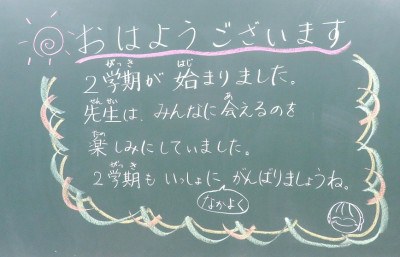 おはようございます
2学期が始まりました。
先生は、みんなに会えるのを
楽しみにしていました。
2学期もいっしょにがんばりましょうね。
なかよく